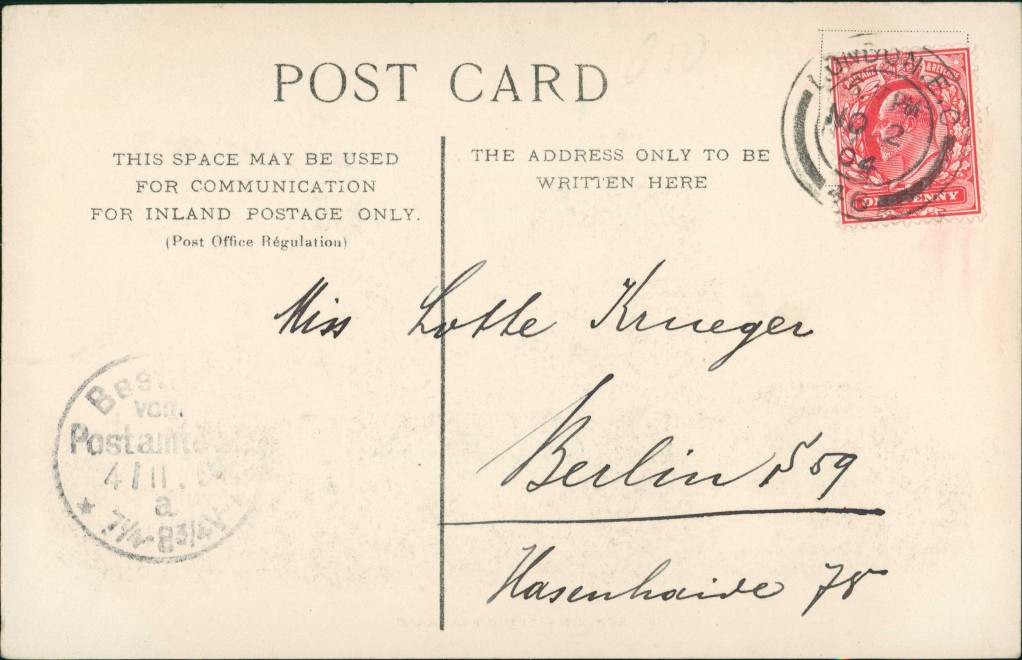 POST CARD
THIS SPACE MAY BE USED
FOR COMMUNICATION
FOR INLAND POSTAGE ONLY.
(Post Office Régulation)
THE ADDRESS ONLY TO BE
WRITTEN HERE
LONDON. E.C
PM
NO 2
04
& REVENUE
ONE PENNY
Miss Lotte Krueger
Berlin S 59
Hasenhaide 78
Best
vom
Postamte
4/11.
a